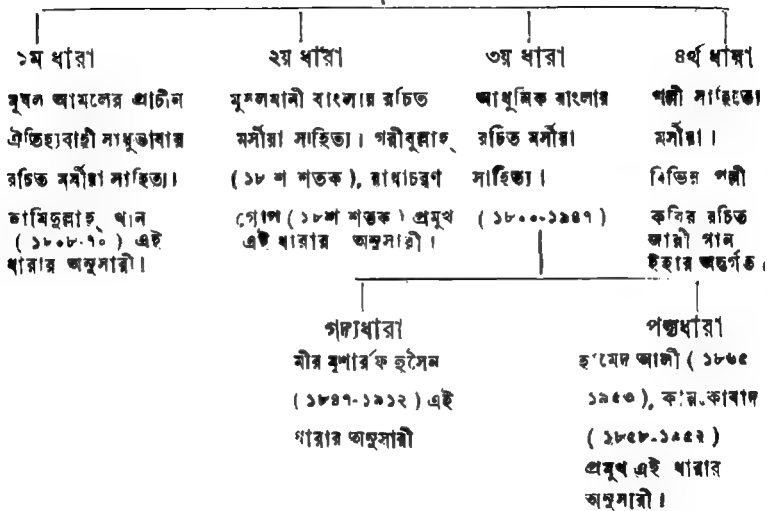 ১ম ধারা
মুঘল আমলের প্রাচীন
ঐতিহ্যবাহী সাধুভাষার
রচিত মর্সীয়া সাহিত্য।
হামিদুল্লাহ্ খান
(১৮০৮-৭০) এই
ধারার অনুসারী।
২য় ধারা
মুসলমানী বাংলায় রচিত
মর্সীয়া সাহিত্য। গরীবুল্লাহ্
(১৮ শ শতক), রাধাচরণ
গোপ (১৮শ শতক) প্রমুখ
এই ধারার অনুসারী।
৩য় ধারা
আধুনিক বাংলার
রচিত মর্সীয়া
সাহিত্য।
(১৮০০-১৯৪৭)
৪র্থ ধারা
পল্লী সাহিত্যে
মর্সীয়া।
বিভিন্ন পল্লী
কবির রচিত
জারী গান
ইহার অন্তর্গত।
গদ্যধারা
মীর মুশার্রফ হুসৈন
(১৮৪৭-১৯১২) এই
ধারার অনুসারী
পদ্যধারা
হামেদ আলী (১৮৬৫
১৯৫৩), কায়-কাবাদ
(১৮৫৮-১৯৫২)
প্রমুখ এই ধারার
অনুসারী।